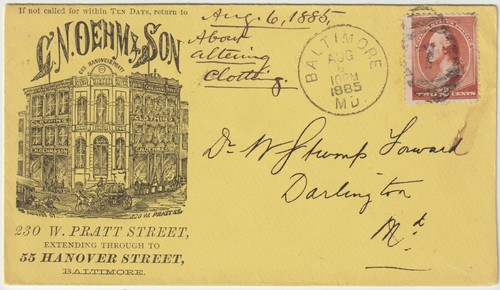 If not called for within TEN DAYS, return to
C. N. OEHM & SON
230 W. PRATT STREET,
EXTENDING THROUGH TO
55 HANOVER STREET,
BALTIMORE.
Aug. 6, 1885,
About
altering
Clothing.
BALTIMORE
AUG
10PM
1885
MD.
TWO CENTS
Dr W Stump Forward
Darlington
Md